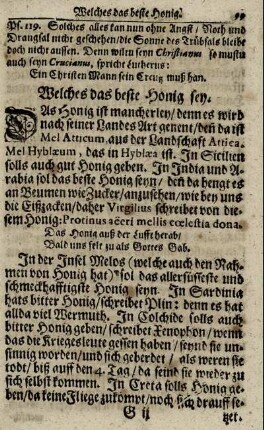 Welches das beste Honig.
Ps. 119. Solches alles kan nun ohne Angst / Noth und
Drangsal nicht geschehen / die Sonne des Trübsals bleibe
doch nicht aussen. Denn wiltu seyn Christianus so mustu
auch seyn Crucianus, spricht Lutherus:
Ein Christen Mann sein Creutz muß han.
Welches das beste Honig sey.
DAs Honig ist mancherley / denn es wird
nach seiner Landes Art genent / den da ist
Mel Atticum, aus der Landschaft Attica
Mel Hyblæum, das in Hyblæa ist. In Sicilien
solls auch gut Honig geben. In India und A-
rabia sol das beste Honig seyn / den da hengt es
an Beumen wie Zucker / anzusehen / wie bey uns
die Eißzacken / daher Virgilius schreibet von die-
sem Honig: Protinus aëreï mellis cœlestia dona.
Das Honig auß der Lufft herab /
Bald uns felt zu als Gottes Gab.
In der Insel Melos (welche auch den Nah-
men von Honig hat) sol das allersüsseste und
schmeckhafftigste Honig seyn. In Sardinia
hats bitter Honig / schreibet Plin: denn es hat
allda viel Wermuth. In Colchide solls auch
bitter Honig geben / schreibet Xenophon / wenn
das die Kriegesleute gessen haben / seynd sie un-
sinnig worden / und sich geberdet / als weren sie
todt / biß auff den 4. Tag / da seind sie wieder zu
sich selbst kommen. In Creta solls Honig ge-
ben / da keine Fliege zukompt / noch sich drauff se-
G ij
tzet.